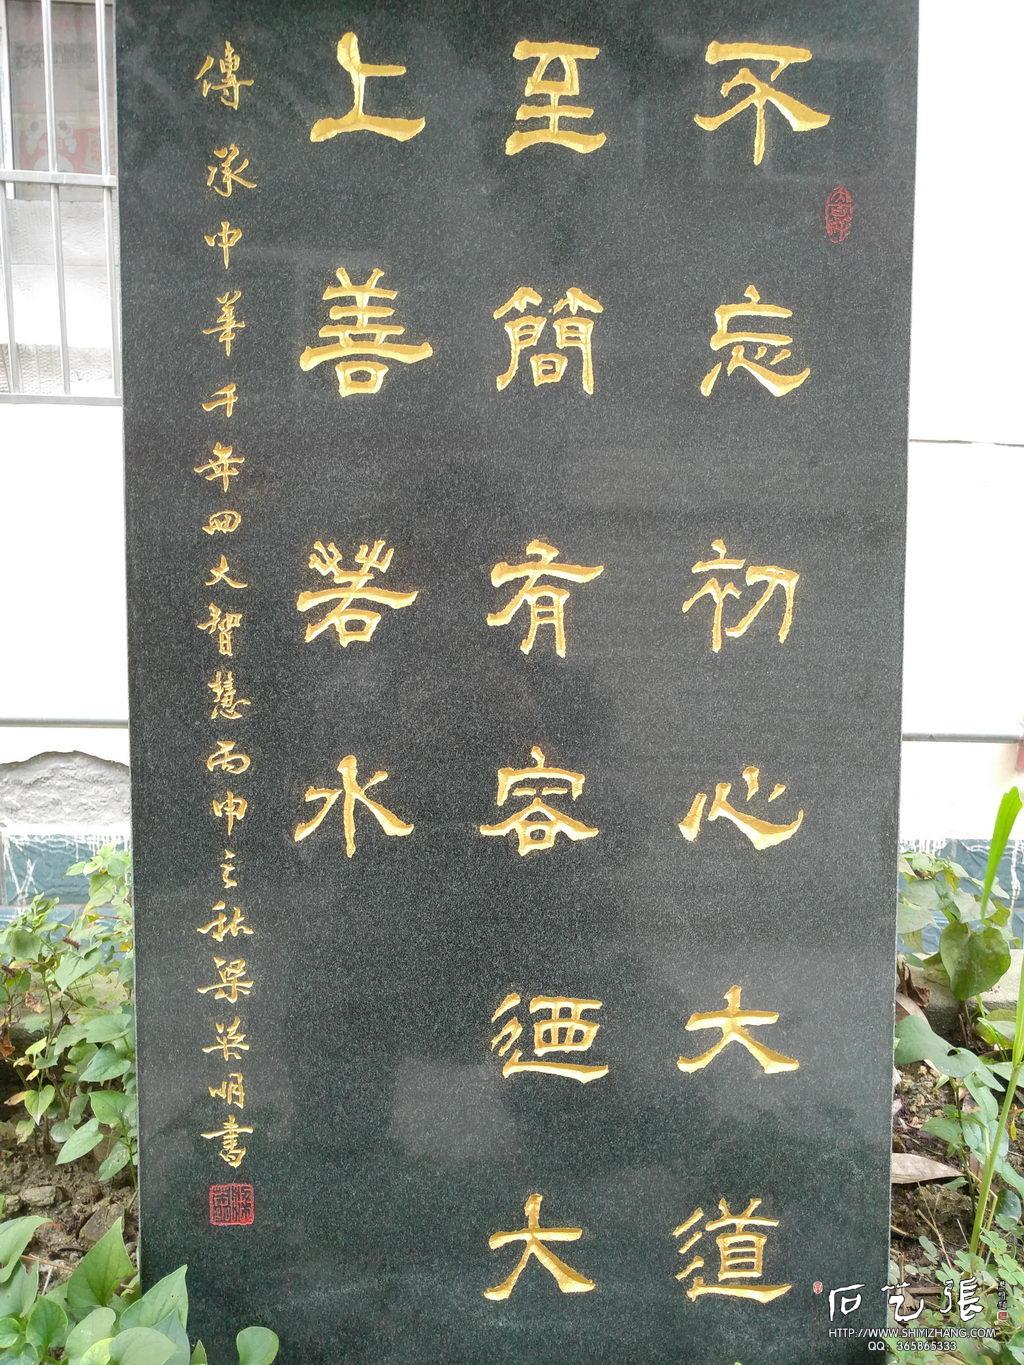 不忘初心大道
至簡有容迺大
上善若水
傳承中華千年四大智慧丙申之秋梁英明書
石艺張
HTTP://WWW.SHIYIZHANG.COM
QQ: 365865333